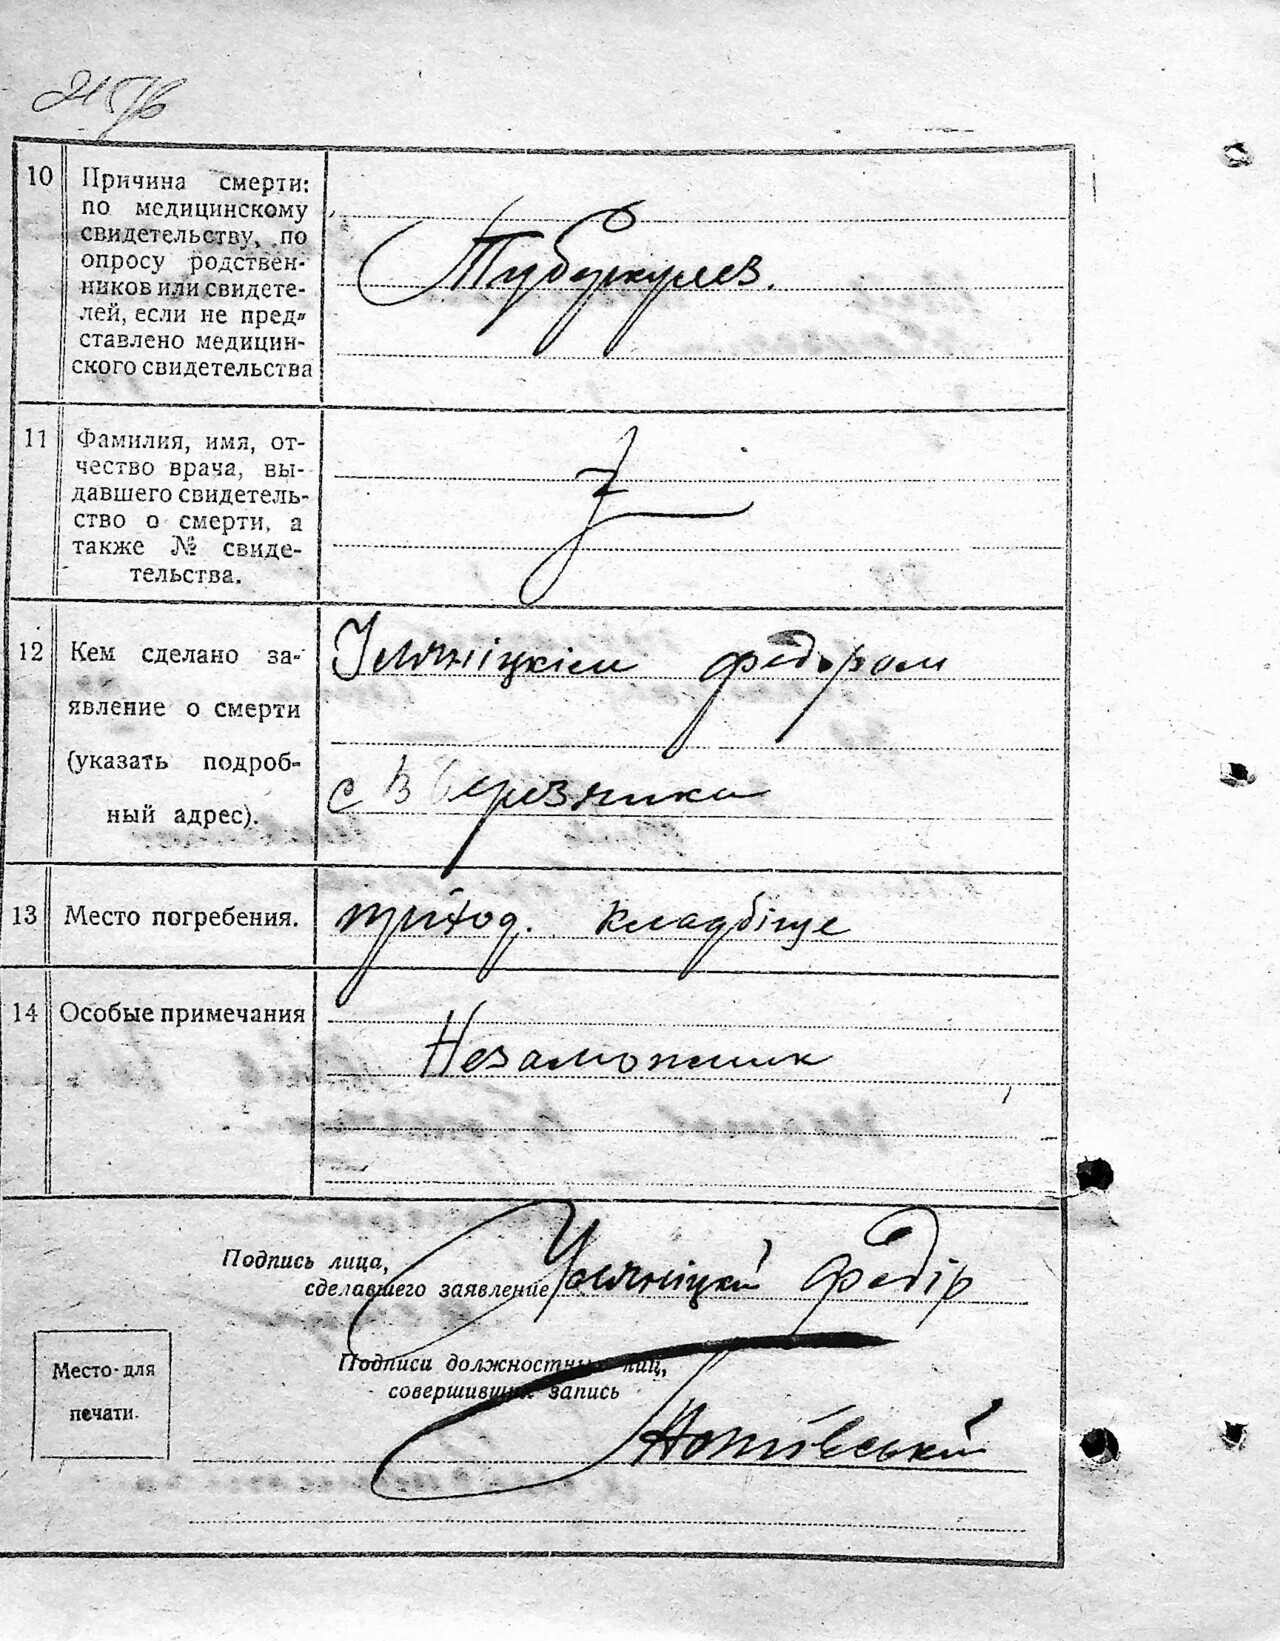 10 Причина смерти:
по медицинскому
свидетельству, по
опросу родствен-
ников или свидете-
лей, если не пред-
ставлено медицин-
ского свидетельства
Туберкулез.
11 Фамилия, имя, от-
чество врача, вы-
давшего свидетель-
ство о смерти, а
также № свиде-
тельства.
12 Кем сделано за-
явление о смерти
(указать подроб-
ный адрес).
Федором
с Березника
13 Место погребения.
приход. кладбіще
14 Особые примечания
Незаможник
Подпись лица,
сделавшего заявление
Федір
Подписи должностных лиц,
совершивших запись
Место для
печати.